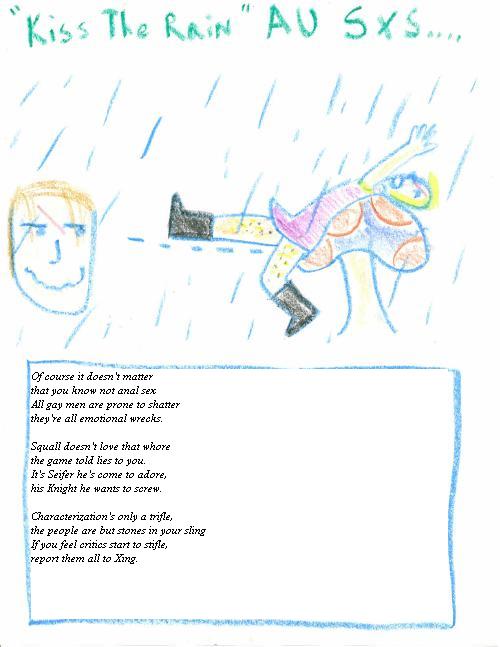 "Kiss The Rain" AU SxS....
Of course it doesn't matter
that you know not anal sex
All gay men are prone to shatter
they're all emotional wrecks.
Squall doesn't love that whore
the game told lies to you.
It's Seifer he's come to adore,
his Knight he wants to screw.
Characterization's only a trifle,
the people are but stones in your sling
If you feel critics start to stifle,
report them all to Xing.